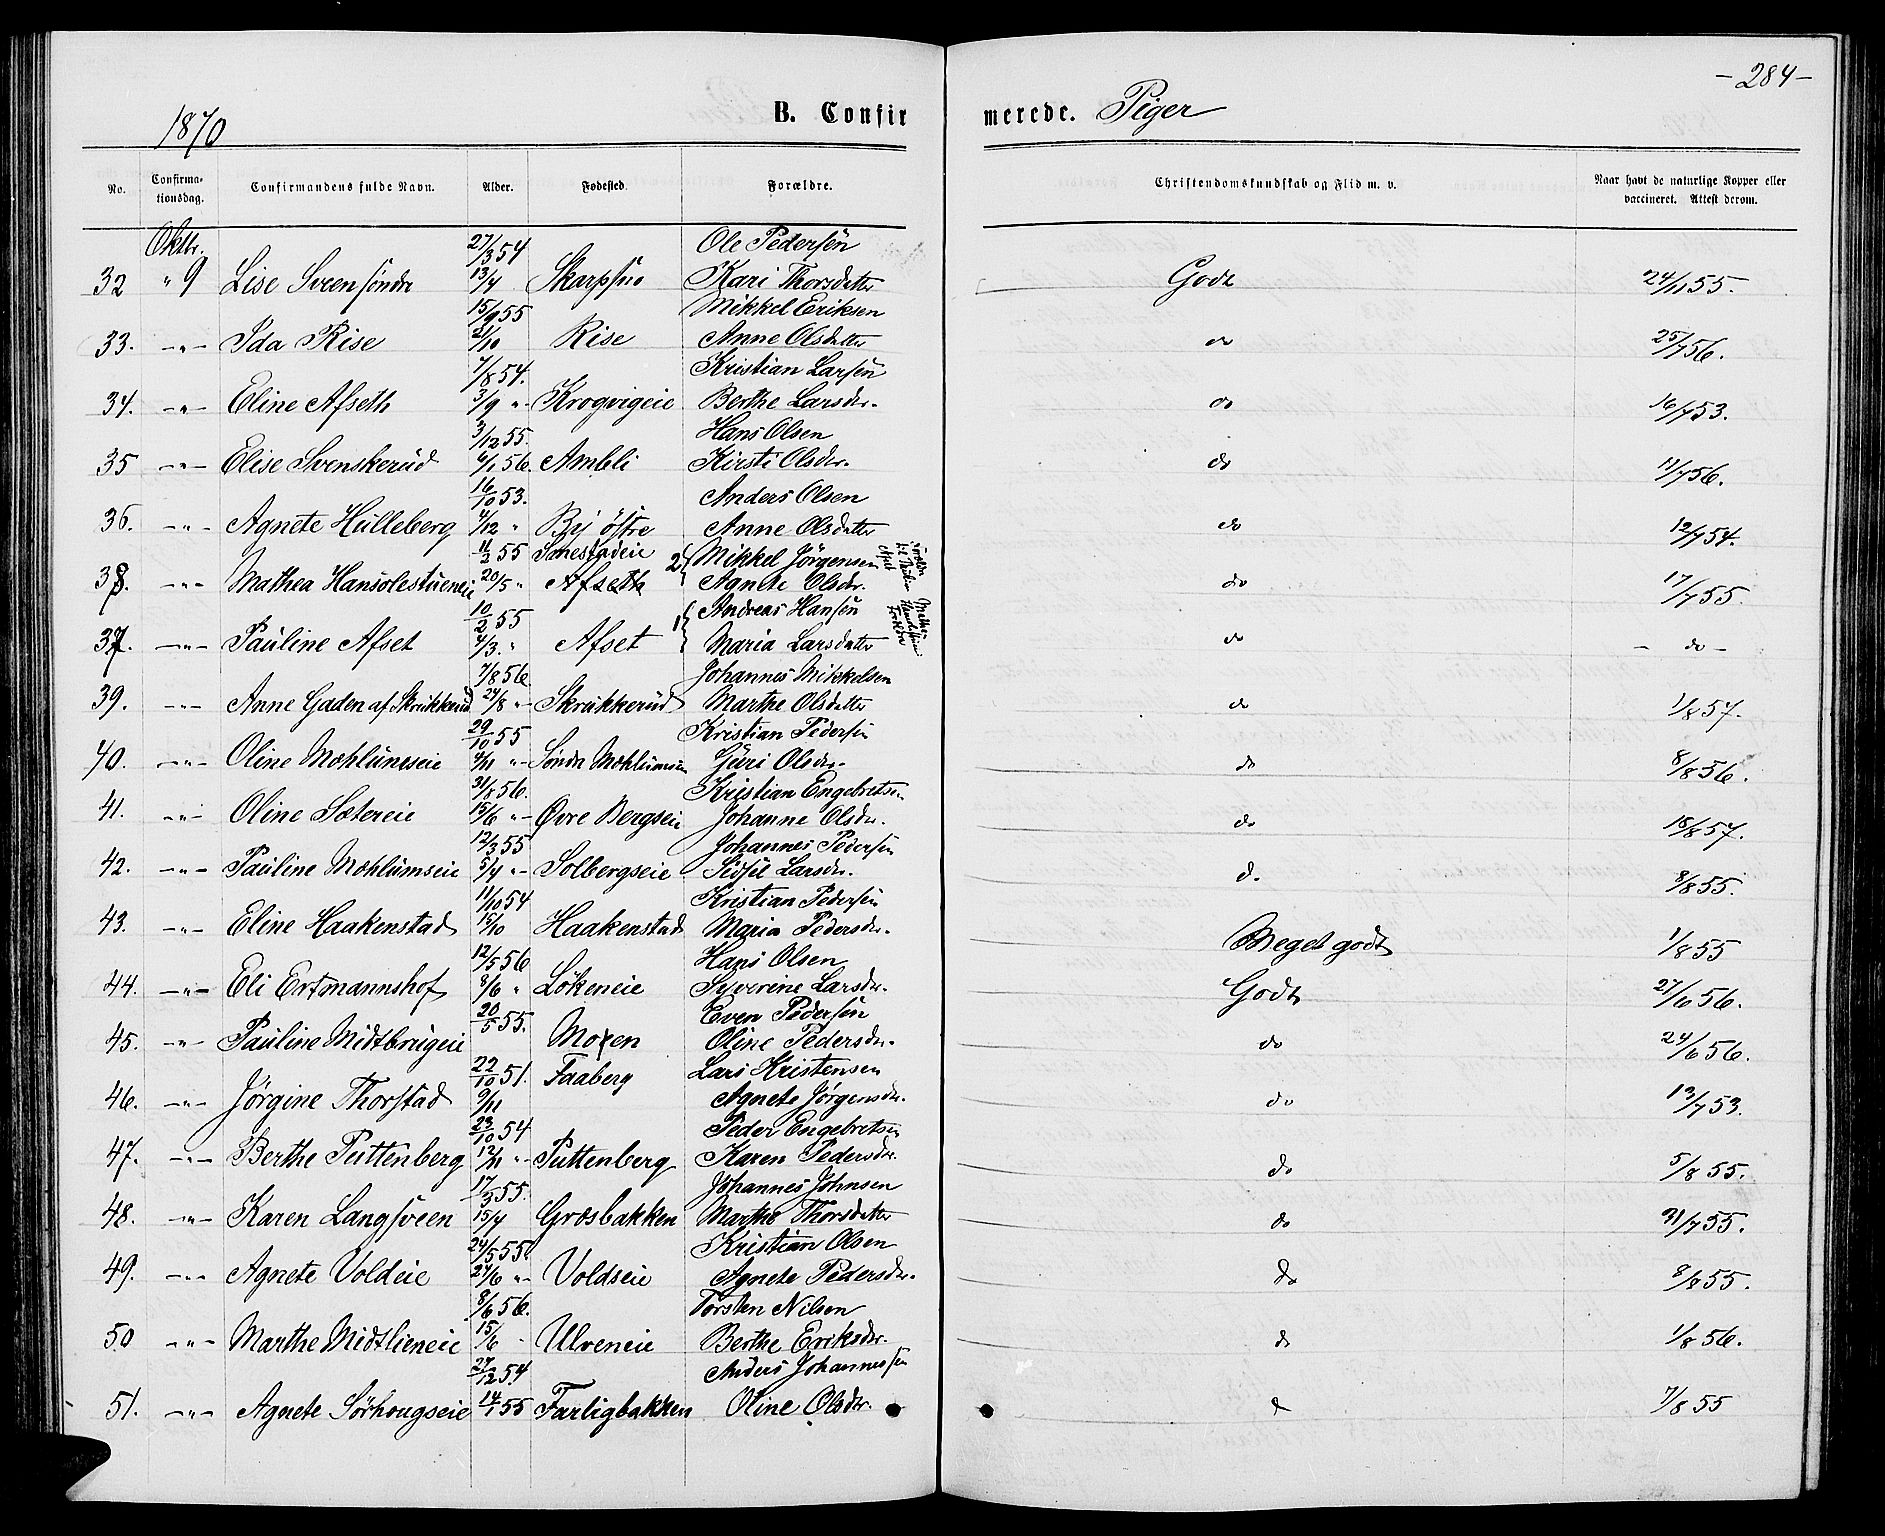 -284-
1870
B. Confir merede. Piger
No. Confirma-tionsdag. Confirmandens fulde Navn. Alder. Fødested. Forældre. Christendomskundskab og Flid m. v. Naar havt de naturlige Kopper eller vaccineret. Attest derom.
Oktbr. 27/3 54 Ole Pedersen
32 " 9 Lise Sveen søndre 13/4 Skarpsno Kari Thorsdatter Godt 24/11 55.
15/9 55 Mikkel Eriksen
33. -"- Ida Rise 21/10 Rise Anne Olsdatter do 25/7 56.
7/8 54. Kristian Larsen
34. -"- Eline Afseth 3/9 " Krogvigeie Berthe Larsdr. do 16/7 53.
3/12 55. Hans Olsen
35 -"- Elise Svenskerud 6/1 56. Ambli Kirsti Olsdr. do 11/7 56.
16/10 53. Anders Olsen
36. -"- Agnete Hulleberg 4/12 " By östre Anne Olsdatter do 12/7 54.
11/2 55 Smestadeie 2 { Mikkel Jörgensen
38. -"- Mathea Hansolestueneie 20/5 " Afseth Agnete Olsdr. do 17/7 55.
10/2 55 1 { Andreas Hansen
37. -"- Pauline Afset 4/3. " Afset Maria Larsdatter do - do -
7/8 56 Johannes Mikkelsen
39. -"- Anne Gaden af Skrukkerud 24/8 " Skrukkerud Marthe Olsdatter do 1/8 57.
29/10 55 Kristian Pedersen
40. -"- Oline Mæhlumseie 4/11 " Søndr Mæhlumseie Guri Olsdr. do 8/8 56.
31/8 56. Kristian Engebretsen
41. -"- Oline Sætereie 15/6 " Øvre Bergseie Johanne Olsdr. do 18/8 57.
12/3 55 Johannes Pedersen
42. -"- Pauline Mæhlumseie 5/4 " Solbergseie Sidsel Larsdr. do 8/8 55.
11/10 54 Kristian Pedersen
43. -"- Eline Haakenstad 15/10 Haakenstad Maria Pedersdr. Meget godt 1/8 55
12/5 56 Hans Olsen
44. -"- Eli Ertmannshof 8/6 " Lökeneie Syverine Larsdr. Godt 27/6 56.
20/5 55. Even Pedersen
45. -"- Pauline Midtbrugeie Moxen Oline Pedersdr. do 24/6 56.
22/10 51. Faaberg Lars Kristensen
46. -"- Jørgine Thorstad 9/11 Agnete Jørgensdr. do 13/7 53.
23/10 54 Peder Engebretsen
47. -"- Berthe Puttenberg 12/11 " Puttenberg Karen Pedersdr. do 5/8 55.
17/3 55. Johannes Johnsen
48. -"- Karen Langsveen 15/4 Græsbakken Marthe Thorsdatter do 31/7 55.
24/5 55. Kristian Olsen
49. -"- Agnete Voldeie 24/6 " Voldseie Agnete Pedersdr. do 8/8 55.
8/6 56. Torsten Nilsen
50 -"- Marthe Midtlieneie 15/6 Ulveneie Berthe Eriksdr. do 1/8 56.
27/12 54 Anders Johannessen
51. -"- Agnete Sörhougseie 14/1 55 Farligbakken Oline Olsdr. do 7/8 55